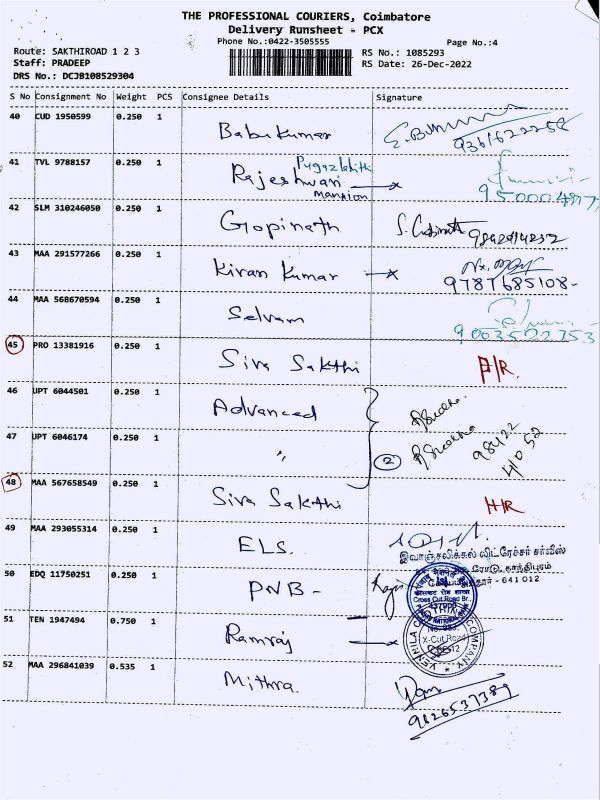 THE PROFESSIONAL COURIERS, Coimbatore
Delivery Runsheet - PCX
Phone No.:0422-3505555
Page No.:4
Route: SAKTHIROAD 1 2 3
RS No.: 1085293
Staff: PRADEEP
RS Date: 26-Dec-2022
DRS No.: DCJB108529304
S No Consignment No Weight PCS Consignee Details Signature
40 CUD 1950599 0.250 1 Babu Kumar
9361622258
41 TVL 9788157 0.250 1 Rajeshwari
mansion
42 SLM 310246050 0.250 1 Gopinath
43 MAA 291577266 0.250 1 Kiran Kumar
9787685108-
44 MAA 568670594 0.250 1 Selvam
9003502753
45 PRO 13381916 0.250 1 Siva Sakthi
46 UPT 6044501 0.250 1 Advanced
47 UPT 6046174 0.250 1 〃
2
98422
48 MAA 567658549 0.250 1 Siva Sakthi
49 MAA 293055314 0.250 1 ELS.
இவாஞ்சலிக்கல் லிட்ரேச்சர் சர்வீஸ்
ரோடு, காந்திபுரம்
- 641 012
50 EDQ 11750251 0.250 1 PNB -
Cross Cut Road Br.,
51 TEN 1947494 0.750 1 Ramraj
X-Cut Road
COMPANY
52 MAA 296841039 0.535 1 Mithra.
9826537389